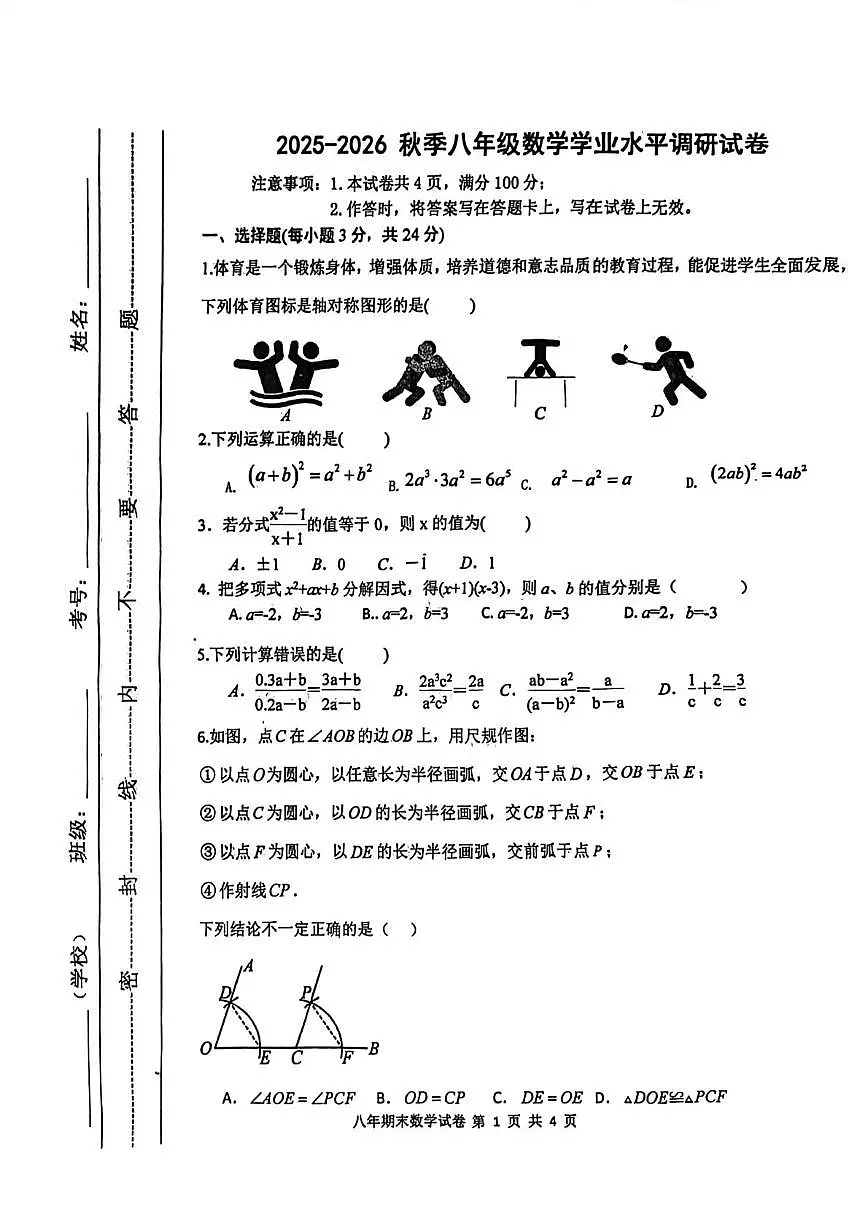 2025-2026 秋季八年级数学学业水平调研试卷
注意事项：1.本试卷共4页，满分100分；
2.作答时，将答案写在答题卡上，写在试卷上无效。
一、选择题(每小题3分，共24分)
1.体育是一个锻炼身体，增强体质，培养道德和意志品质的教育过程，能促进学生全面发展，
下列体育图标是轴对称图形的是(  )
A B C D
2.下列运算正确的是(  )
A. (a+b)²=a²+b² B. 2a³·3a²=6a⁵ C. a²-a²=a D. (2ab)²=4ab²
3. 若分式(x²-1)/(x+1)的值等于0，则x的值为(  )
A. ±1 B. 0 C. -1 D. 1
4. 把多项式x²+ax+b分解因式，得(x+1)(x-3)，则a、b的值分别是（  ）
A. a=-2，b=-3 B.. a=2，b=3 C. a=-2，b=3 D. a=2，b=-3
5.下列计算错误的是(  )
A. (0.3a+b)/(0.2a-b)=(3a+b)/(2a-b) B. 2a³c²/a²c³=2a/c C. (ab-a²)/(a-b)²=a/(b-a) D. 1/c+2/c=3/c
6.如图，点C在∠AOB的边OB上，用尺规作图：
①以点O为圆心，以任意长为半径画弧，交OA于点D，交OB于点E；
②以点C为圆心，以OD的长为半径画弧，交CB于点F；
③以点F为圆心，以DE的长为半径画弧，交前弧于点P；
④作射线CP.
下列结论不一定正确的是（  ）
A
D P
O E C F B
A. ∠AOE=∠PCF B. OD=CP C. DE=OE D. △DOE≌△PCF
八年期末数学试卷 第 1 页 共 4 页
（学校） 班级： 考号： 姓名：
密 封 线 内 不 要 答 题